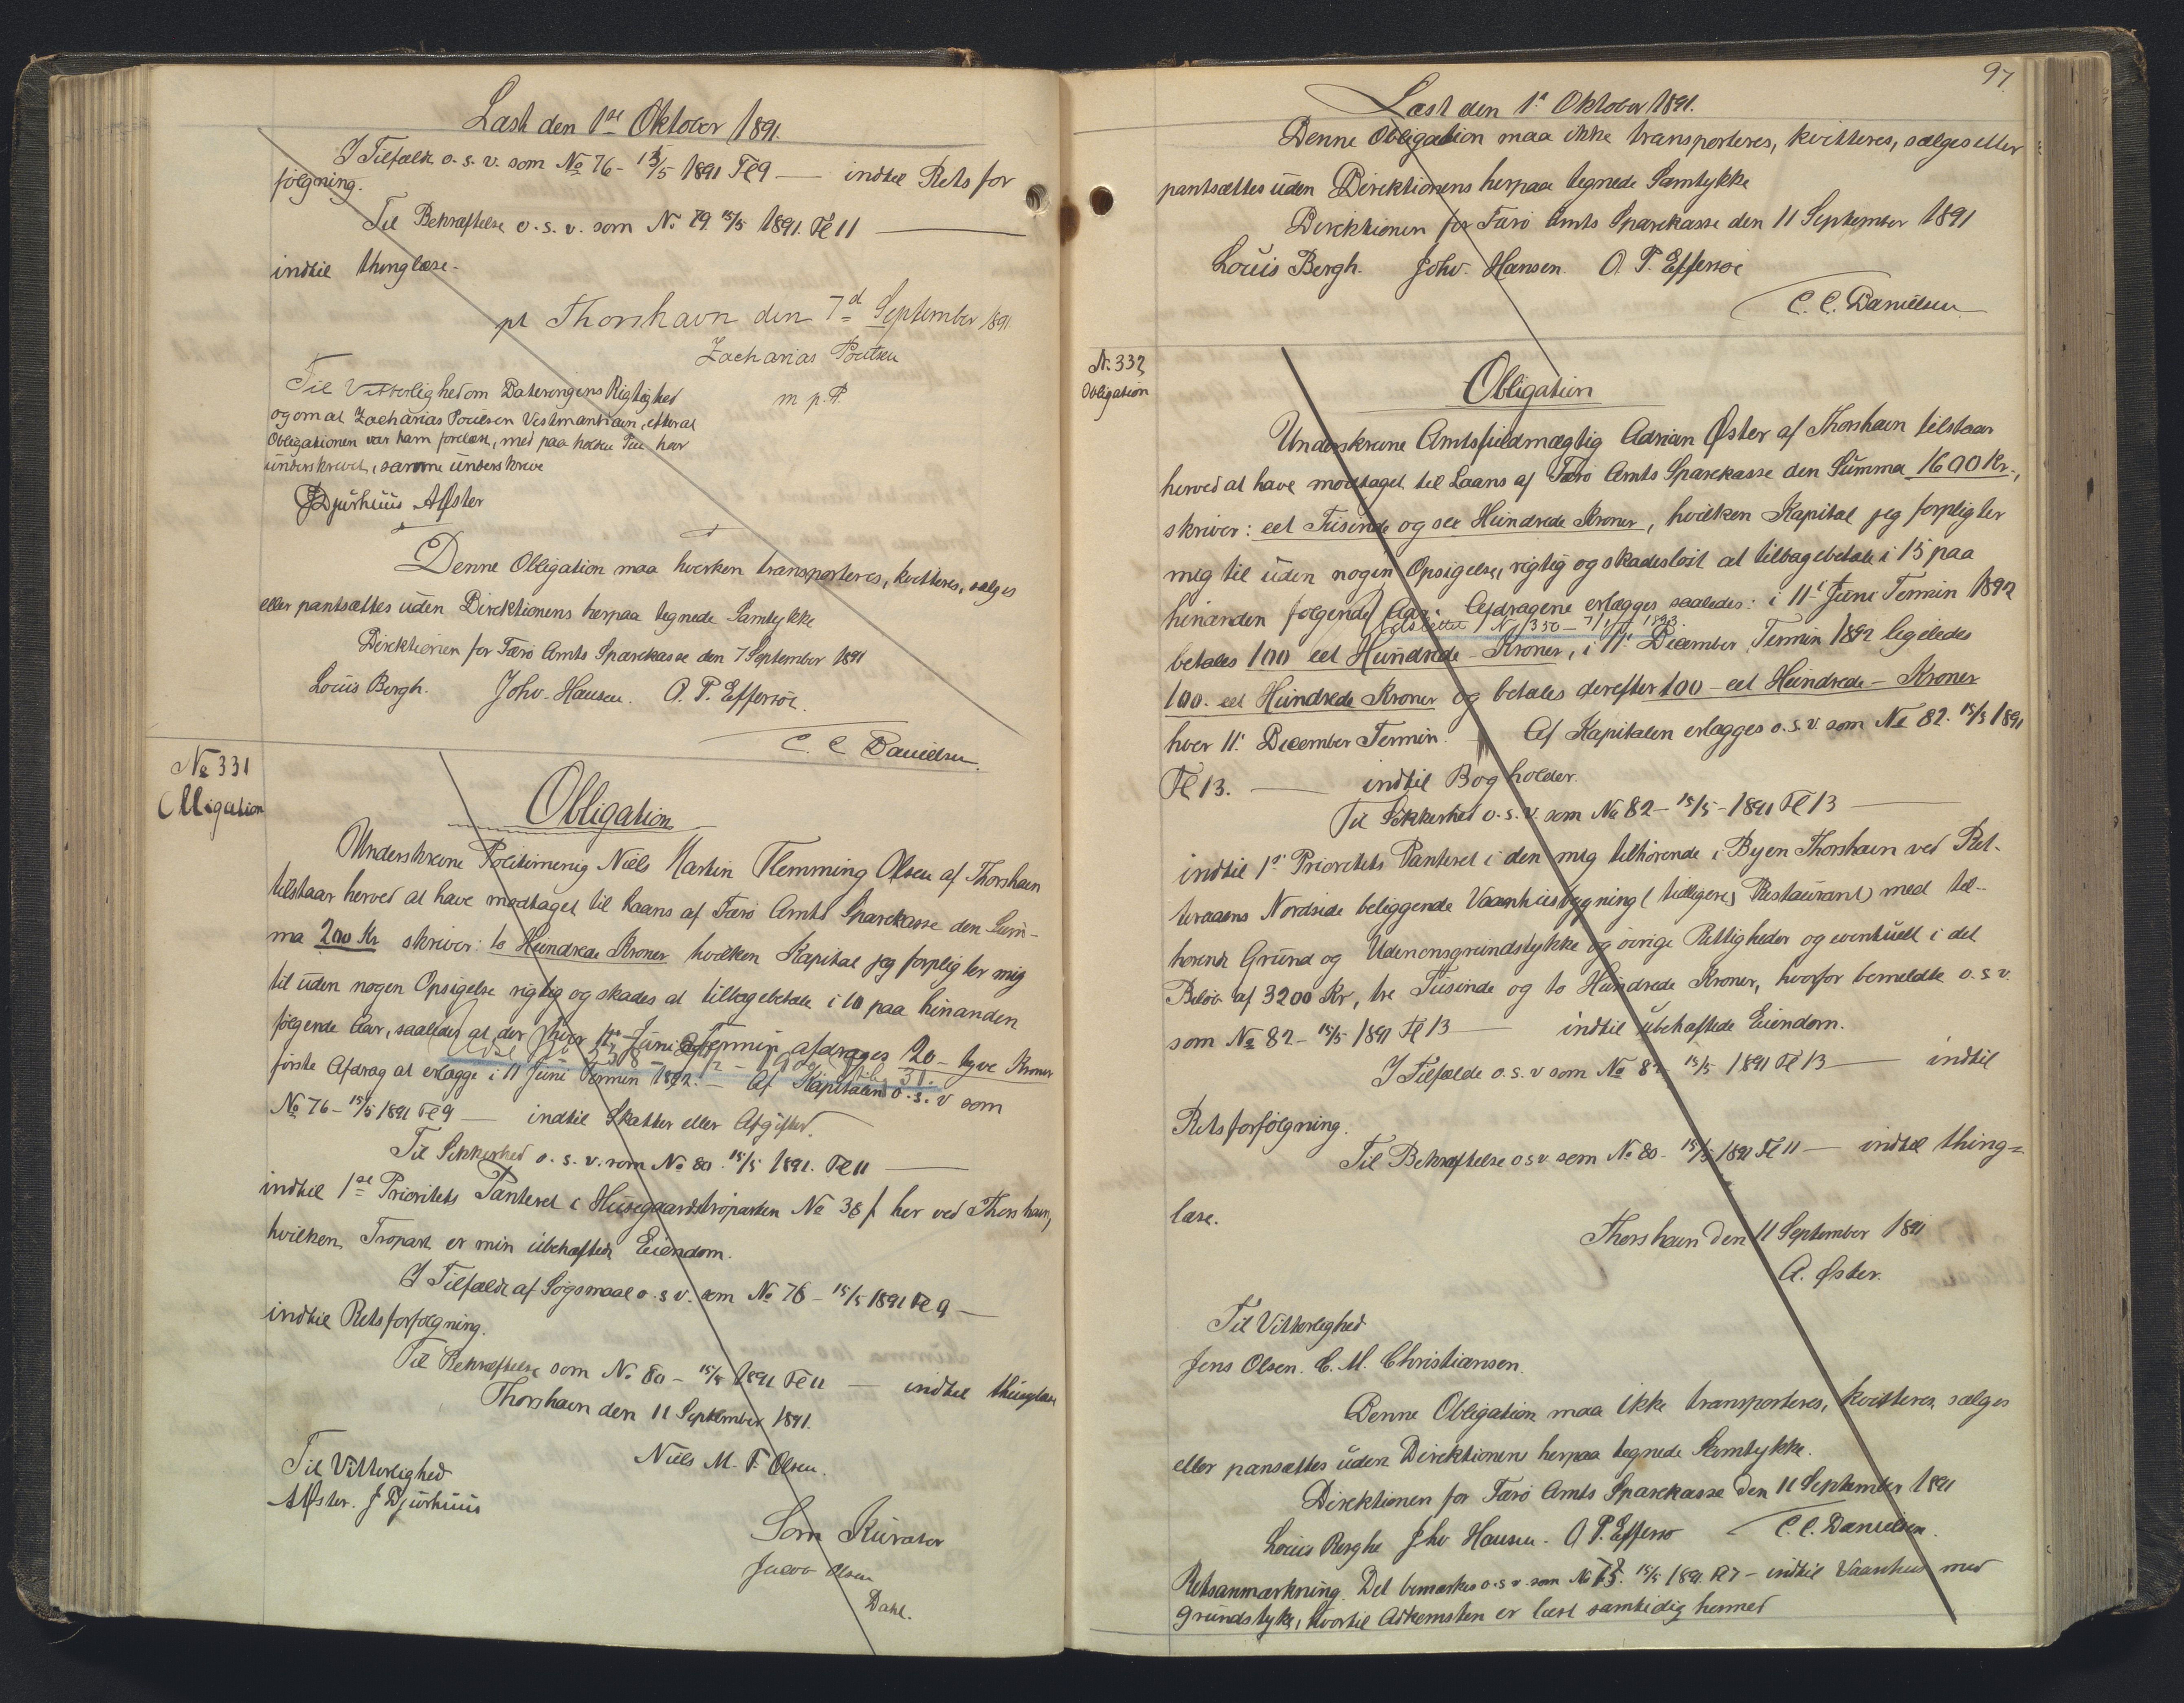 Læst den 1ste Oktober 1891.
I Tilfælde o. s. v. som No 76 - 15/5 1891 Fl 9 — indtil Rets for
følgning.
Til Bekræftelse o. s. v. som No 79 15/5 1891. Fl 11 —
indtil thinglæse.
pt Thorshavn den 7d September 1891.
Zacharias Poulsen
m. p. P.
Til Vitterlighed om Dateringens Rigtighed
og om at Zacharias Poulsen Vestmanhavn, efter at
Obligationen var ham forelæst, med paa holden Pen har
underskrevet, samme underskrive
J Djurhuus AØster
Denne Obligation maa hverken transporteres, kvitteres, sælges
eller pantsættes uden Direktionens herpaa tegnede Samtykke
Direktionen for Færø Amts Sparekasse den 7 September 1891
Louis Bergh. Johv. Hansen. O. P. Effersøe.
C. C. Danielsen.
No 331
Obligation
Obligation
Underskrevne Politimenig Niels Martin Flemming Olsen af Thorshavn
tilstaar herved at have modtaget til Laans af Færø Amts Sparekasse den Sum-
ma 200 Kr skriver: to Hundrede Kroner hvilken Kapital jeg forpligter mig
til uden nogen Opsigelse rigtig og skades at tilbagebetale i 10 paa hinanden
følgende Aar, saaledes at der hver 11te Juni Termin afdrages 20 - tyve Kroner
første Afdrag at erlægge i 11 Juni Termin 1892. — Af Kapitalen o. s. v som
No 76 - 15/5 1891 Fl 9 — indtil Skatter eller Afgifter.
Til Sikkerhed o. s. v. som No 80. 15/5 1891. Fl 11 —
indtil 1ste Prioritets Panteret i Husegaardstroparten No 38 f her ved Thorshavn,
hvilken Tropart er min ubehæftede Eiendom.
I Tilfælde af Søgsmaal o. s v. som No 76 - 15/5 1891 Fl 9 —
indtil Retsforfølgning.
Til Bekræftelse som No 80 - 15/5 1891 Fl 11 — indtil thinglæse
Thorshavn den 11 September 1891.
Niels M. F. Olsen.
Til Vitterlighed
AØster. J Djurhuus
Som Kurator
Jacob Olsen
Dahl.
97
Læst den 1ste Oktober 1891.
Denne Obligation maa ikke transporteres, kvitteres, sælges eller
pantsættes uden Direktionens herpaa tegnede Samtykke
Direktionen for Færø Amts Sparekasse den 11 September 1891
Louis Bergh. Johv. Hansen. O. P. Effersøe
C. C. Danielsen
No 332
Obligation
Obligation
Underskrevne Amtsfuldmægtig Adrian Øster af Thorshavn tilstaar
herved at have modtaget til Laans af Færø Amts Sparekasse den Summa 1600 Kr.,
skriver: eet Tusinde og sex Hundrede Kroner, hvilken Kapital jeg forpligter
mig til uden nogen Opsigelse, rigtig og skadesløst at tilbagebetale i 15 paa
hinanden følgende Aar. Afdragene erlægges saaledes: i 11te Juni Termin 1892
betales 100 eet Hundrede Kroner, i 11te December Termin 1892 ligeledes
100. eet Hundrede Kroner og betales derefter 100 - eet Hundrede - Kroner
hver 11te December Termin. Af Kapitalen erlægges o. s. v. som No 82. 15/5 1891
Fl 13. — indtil Bog holder.
Til Sikkerhed o. s. v. som No 82 - 15/5 - 1891 Fl 13 —
indtil 1ste Prioritets Panteret i den mig tilhørende i Byen Thorshavn ved Ret-
teraaens Nordside beliggende Vaanhusbygning (tidligere Restaurant) med til-
hørende Grund og Udenomsgrundstykke og øvrige Rettigheder og eventuelt i det
Beløb af 3200 Kr, tre Tusinde og to Hundrede Kroner, hvorfor bemeldte o. s v.
som No 82 - 15/5 1891 Fl 13 — indtil ubehæftede Eiendom.
I Tilfælde o. s. v som No 82 15/5 1891 Fl 13 — indtil
Retsforfølgning.
Til Bekræftelse o s v som No 80 - 15/5 1891 Fl 11 — indtil thing=
læse.
Thorshavn den 11 September 1891
A. Øster.
Til Vitterlighed
Jens Olsen. C. M. Christiansen.
Denne Obligation maa ikke transporteres, kvitteres, sælges
eller pansættes uden Direktionens herpaa tegnede Samtykke.
Direktionen for Færø Amts Sparekasse den 11 September 1891
Louis Berghe Johv Hansen. O P. Effersø C. C. Danielsen.
Retsanmærkning. Det bemærkes o. s v. som No 75. 15/5 1891. Fl 7 - indtil Vaanhus med
grundstyke, hvortil Adkomsten er læst samtidig hermed